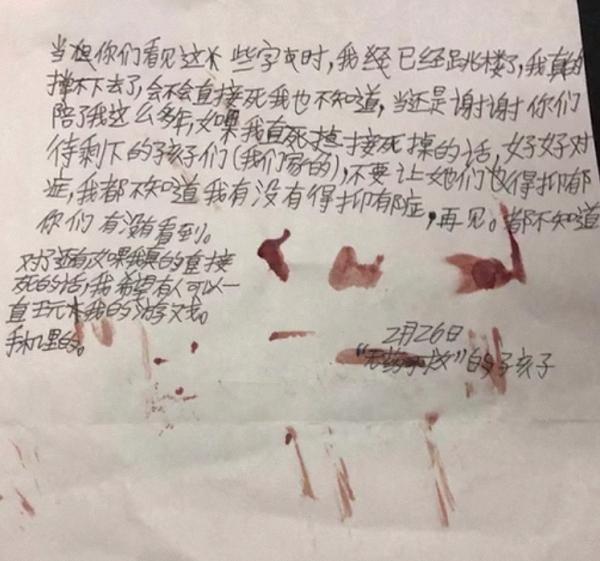 当你们看见这些字时，我经已经跳楼了，我真的
撑不下去了，会不会直接死我也不知道，当还是谢谢你们
陪了我这么多年，如果我直接死掉的话，好好对
待剩下的孩子们(我们家的)，不要让她们也得抑郁
症，我都不知道我有没有得抑郁症，再见。都不知道
你们有没有看到。
对了还有如果我真的直接
死的话，我希望有人可以一
直玩我的游戏。
手机里的。
2月26日
的子孩子